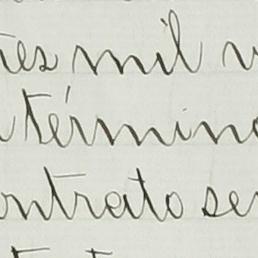 res mil v
término
ontrato ser